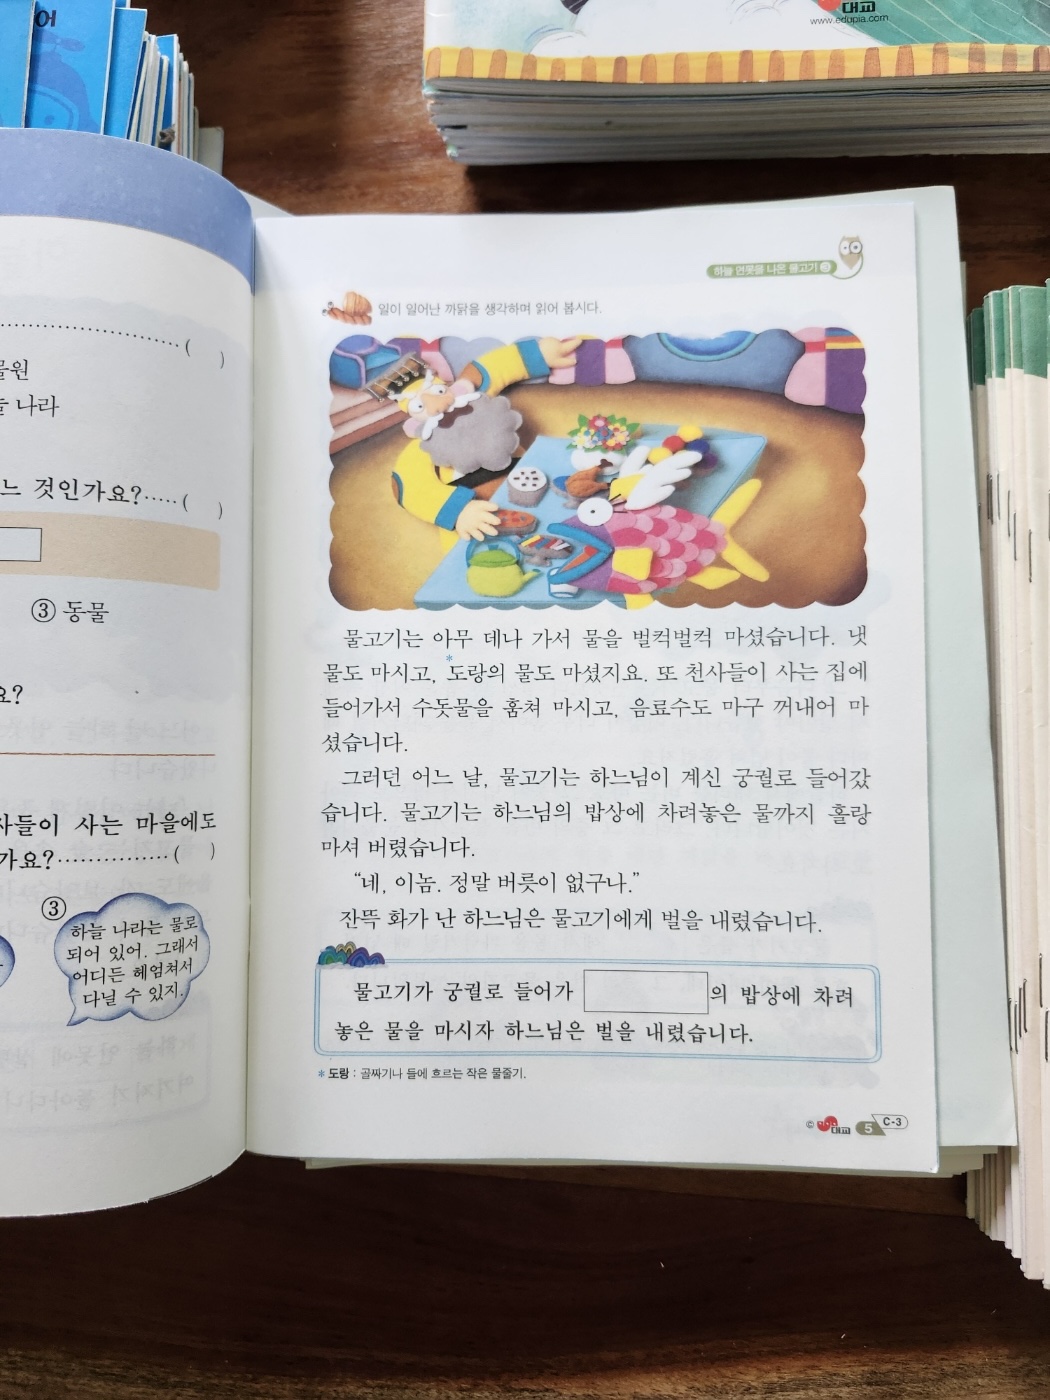 어
대교
www.edupia.com
물원
나라
느 것인가요?·····(    )
③ 동물
요?
사들이 사는 마을에도
가요?··············(    )
③
하늘 나라는 물로
되어 있어. 그래서
어디든 헤엄쳐서
다닐 수 있지.
하늘 연못을 나온 물고기 3
일이 일어난 까닭을 생각하며 읽어 봅시다.
물고기는 아무 데나 가서 물을 벌컥벌컥 마셨습니다. 냇
물도 마시고, *도랑의 물도 마셨지요. 또 천사들이 사는 집에
들어가서 수돗물을 훔쳐 마시고, 음료수도 마구 꺼내어 마
셨습니다.
그러던 어느 날, 물고기는 하느님이 계신 궁궐로 들어갔
습니다. 물고기는 하느님의 밥상에 차려놓은 물까지 홀랑
마셔 버렸습니다.
“네, 이놈. 정말 버릇이 없구나.”
잔뜩 화가 난 하느님은 물고기에게 벌을 내렸습니다.
물고기가 궁궐로 들어가 의 밥상에 차려
놓은 물을 마시자 하느님은 벌을 내렸습니다.
* 도랑 : 골짜기나 들에 흐르는 작은 물줄기.
© 대교 5 C-3